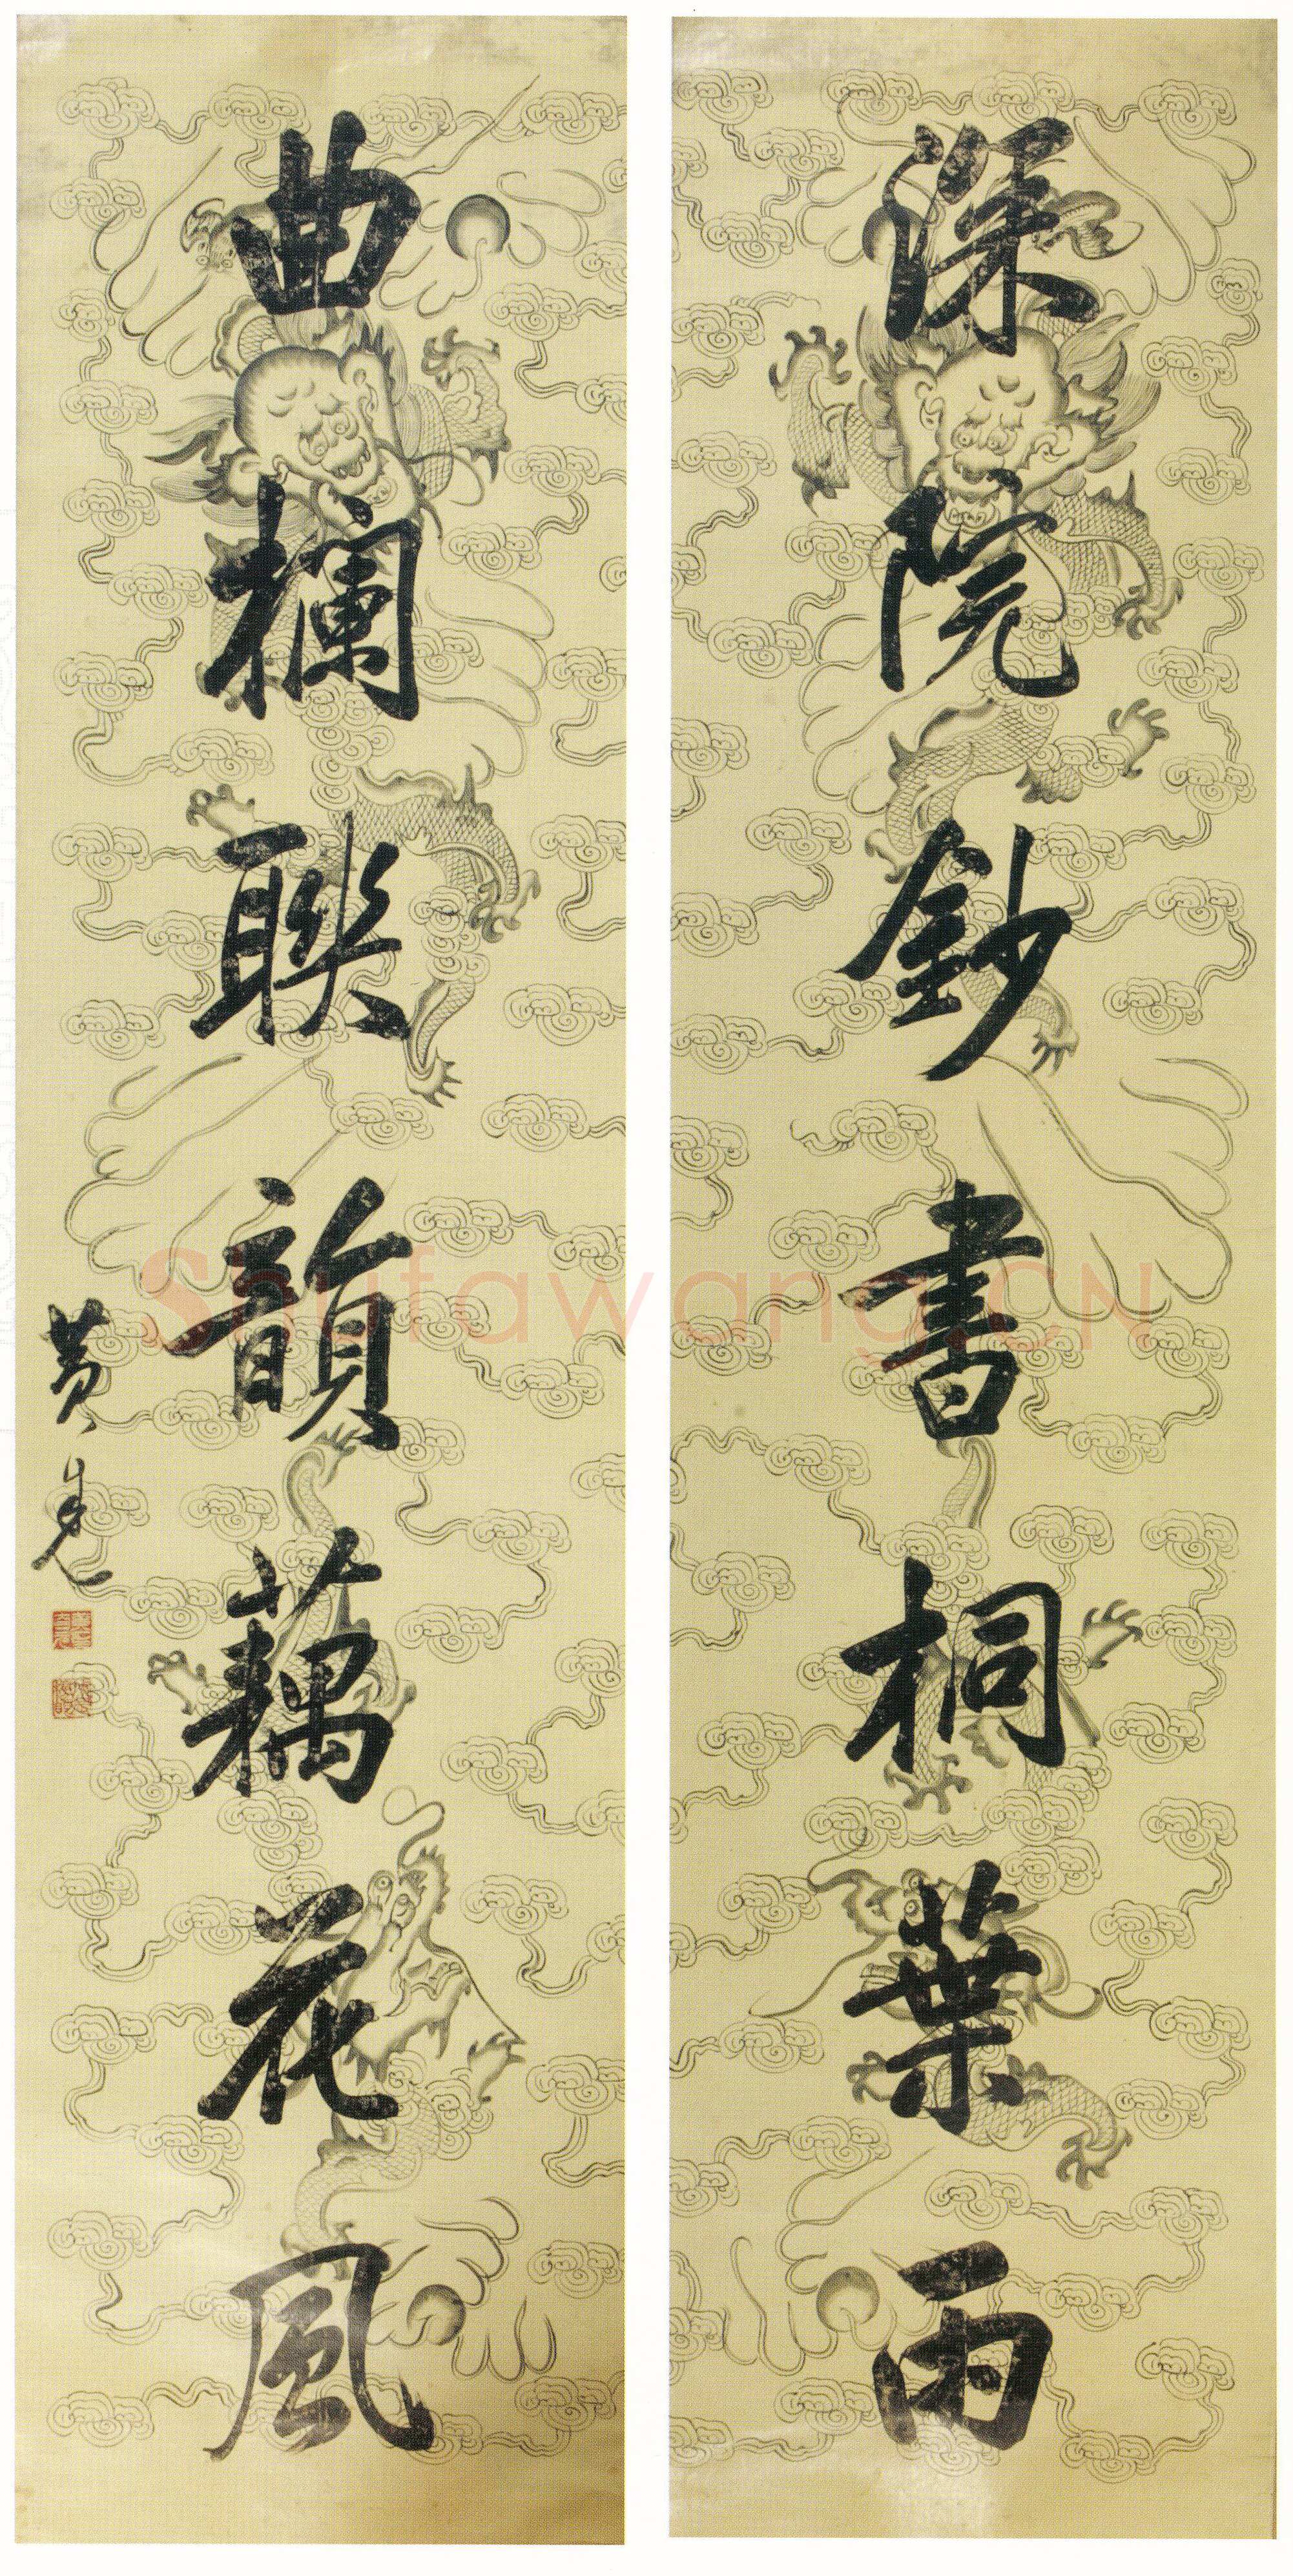 深院鈔書桐葉雨
曲欄聯韻藕花風
黄自元
Shufawang.CN